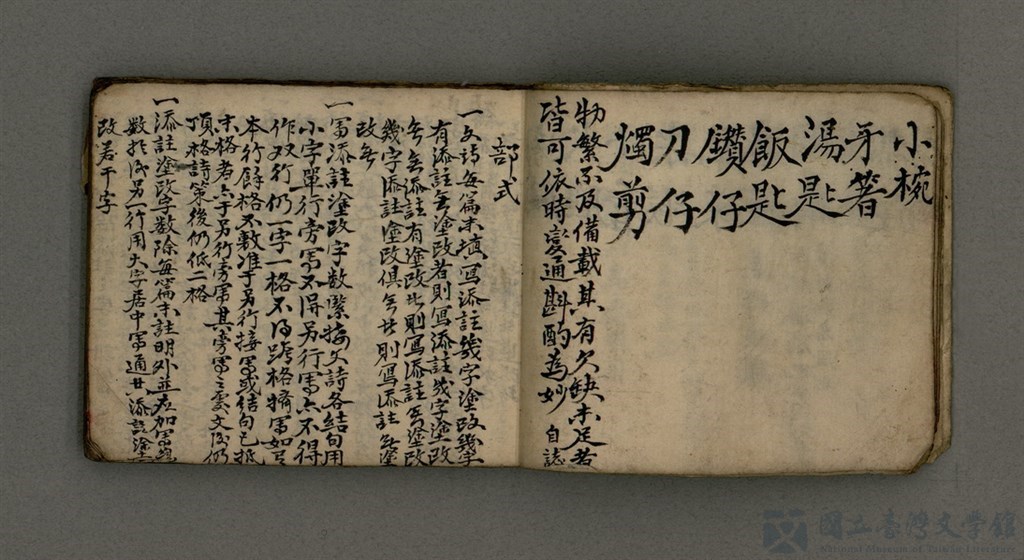 小椀
牙箸
湯匙
飯匙
鑽仔
刀仔
燭剪
物繁不及備載其有欠缺未足者
皆可依時變通斟酌為妙 自誌
部式
一文詩每篇末填寫添註幾字塗改幾字
有添註無塗改者則寫添註幾字塗改
無無添註有塗改者則寫添註無塗改
幾字添註塗改俱無者則寫添註無塗
改無
一寫添註塗改字數緊接文詩各結句用
小字單行旁寫不得另行寫亦不得
作双行仍一字一格不得跨格擠寫如
本行餘格不敷准于另行接寫或結句已抵
末格者亦于另行旁寫其旁寫之處文後仍
頂格詩策後仍低二格
一添註塗改字數除每篇末註明外並
數於後另一行用大字居中寫通共添註塗
改若干字
國立臺灣文學館
National Museum of Taiwan Literature